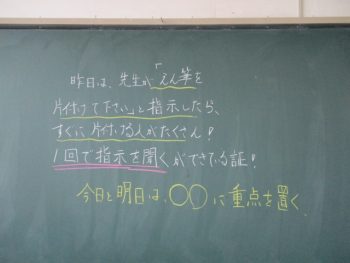 昨日は、先生が「えん筆を
片付けて下さい」と指示したら、
すぐに片付ける人がたくさん!
1回で指示を聞くができている証!
今日と明日は、○○に重点を置く。